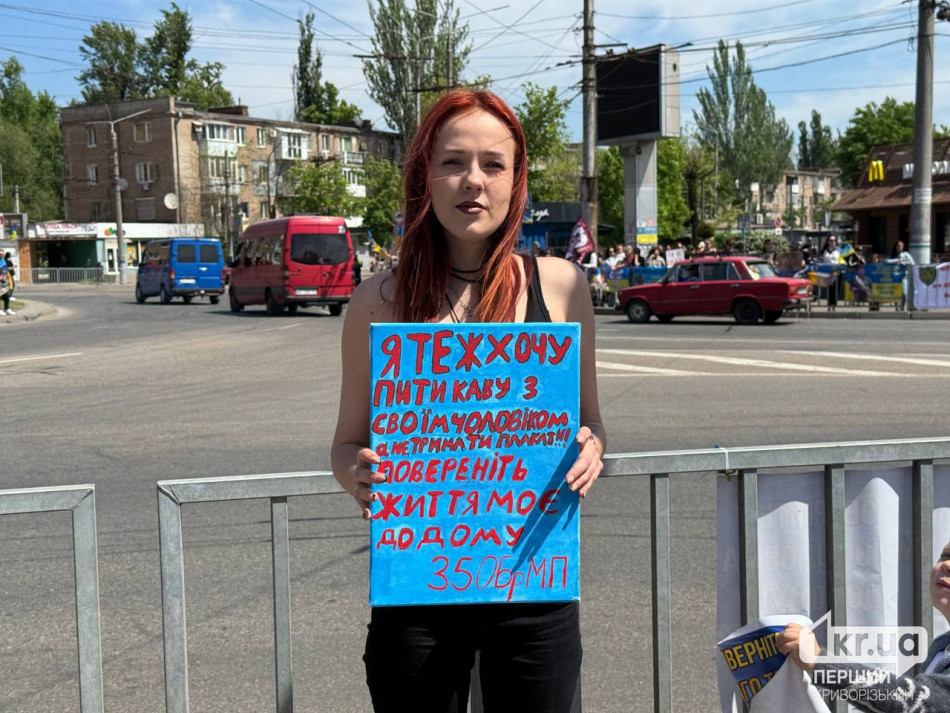 Я ТЕЖ ХОЧУ
ПИТИ КАВУ З
СВОЇМ ЧОЛОВІКОМ
А НЕ ТРИМАТИ ПЛАКАТ!!!
ПОВЕРЕНІТЬ
ЖИТТЯ МОЄ
ДО ДОМУ
35ОБрМП
ВЕРНІТЬ
1kr.ua
ПЕРШИЙ
КРИВОРІЗЬКИЙ